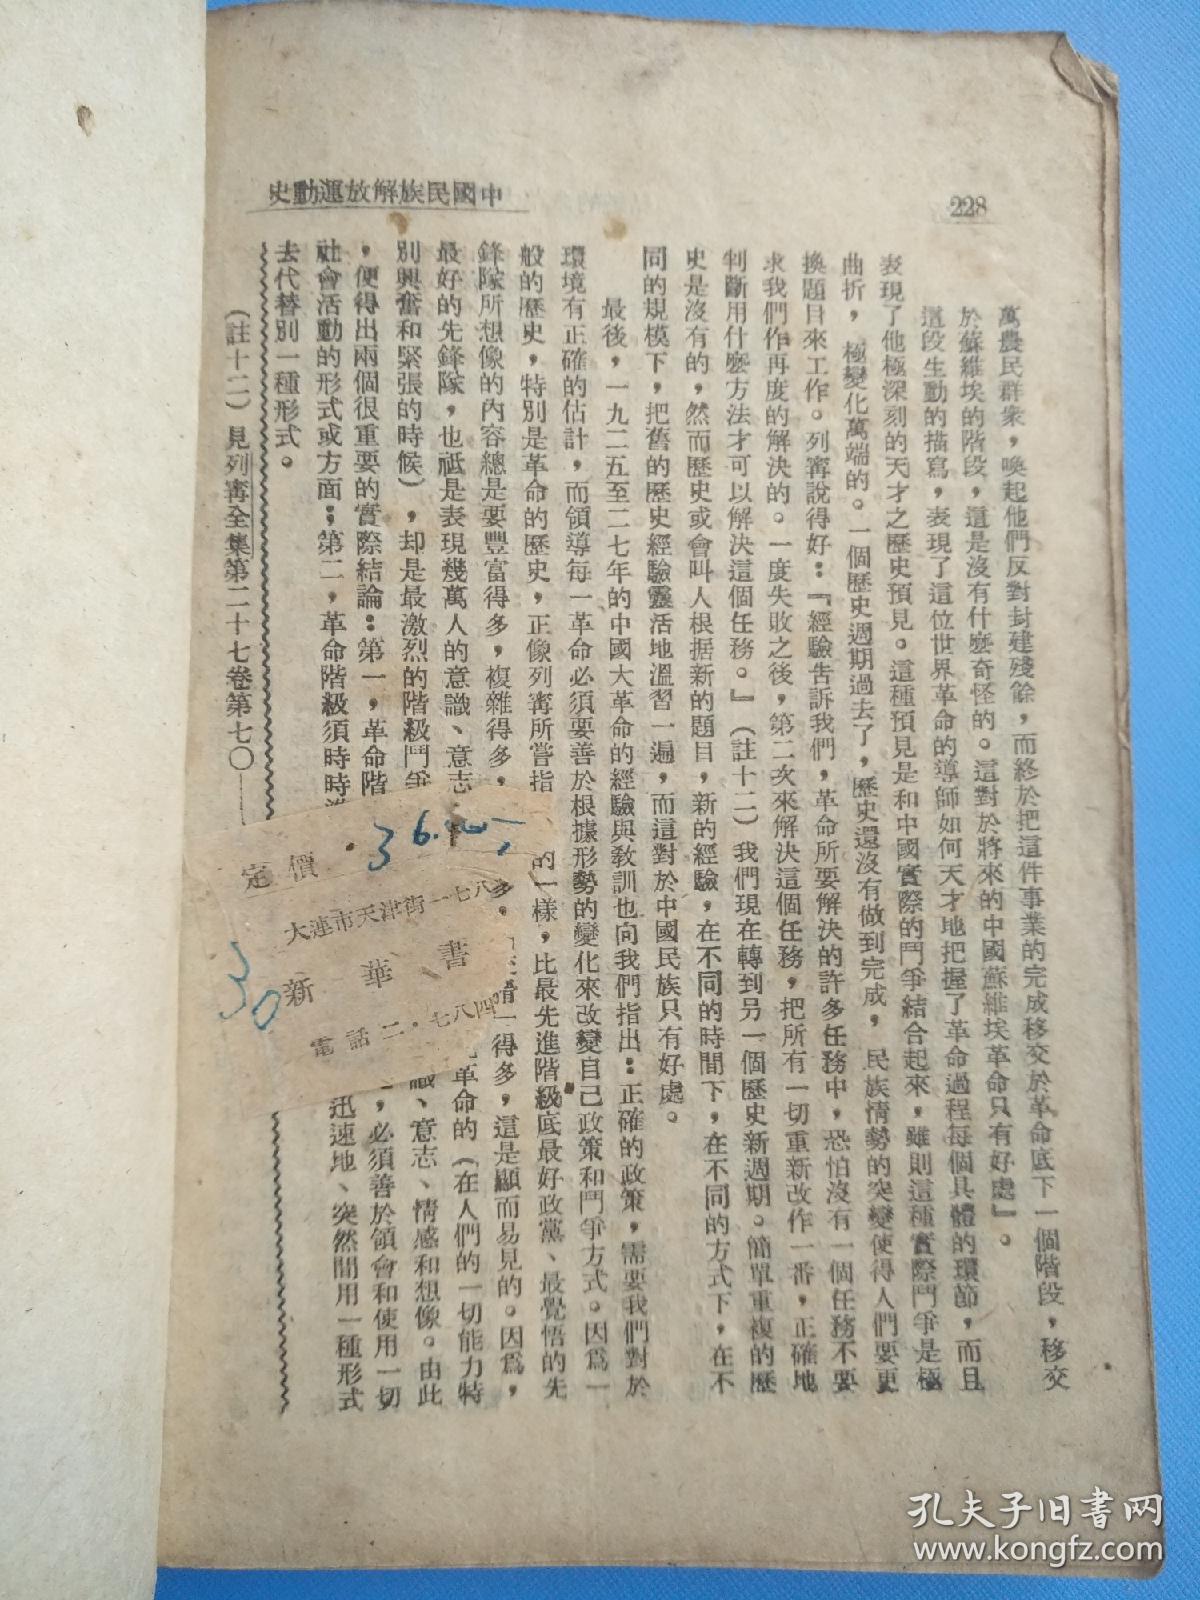 228
中國民族解放運動史
萬農民群衆，喚起他們反對封建殘餘，而終於把這件事業的完成移交於革命底下一個階段，移交
於蘇維埃的階段，這是沒有什麼奇怪的。這對於將來的中國蘇維埃革命只有好處』。
這段生動的描寫，表現了這位世界革命的導師如何天才地把握了革命過程每個具體的環節，而且
表現了他極深刻的天才之歷史預見。這種預見是和中國實際的鬥爭結合起來，雖則這種實際鬥爭是極
曲折，極變化萬端的。一個歷史週期過去了，歷史還沒有做到完成，民族情勢的突變使得人們要更
換題目來工作。列甯說得好：『經驗告訴我們，革命所要解決的許多任務中，恐怕沒有一個任務不要
求我們作再度的解決的。一度失敗之後，第二次來解決這個任務，把所有一切重新改作一番，正確地
判斷用什麼方法才可以解決這個任務。』（註十二）我們現在轉到另一個歷史新週期。簡單重複的歷
史是沒有的，然而歷史或會叫人根据新的題目，新的經驗，在不同的時間下，在不同的方式下，在不
同的規模下，把舊的歷史經驗靈活地溫習一遍，而這對於中國民族只有好處。
最後，一九二五至二七年的中國大革命的經驗與敎訓也向我們指出：正確的政策，需要我們對於
環境有正確的估計，而領導每一革命必須要善於根據形勢的變化來改變自己政策和鬥爭方式。因爲一
般的歷史，特別是革命的歷史，正像列甯所嘗指的一樣，比最先進階級底最好政黨、最覺悟的先
鋒隊所想像的內容總是要豐富得多，複雜得多，多，得多，這是顯而易見的。因爲，
最好的先鋒隊，也祗是表現幾萬人的意識、意志革命的（在人們的一切能力特
別興奮和緊張的時候），却是最激烈的階級鬥爭識、意志、情感和想像。由此
，便得出兩個很重要的實際結論：第一，革命階，必須善於領會和使用一切
社會活動的形式或方面；第二，革命階級須時時準迅速地、突然間用一種形式
去代替別一種形式。
（註十二）見列甯全集第二十七卷第七〇——
定價
36.00
大連市天津街一七八
新華書
電話二·七八四
30
孔夫子旧书网
www.kongfz.com